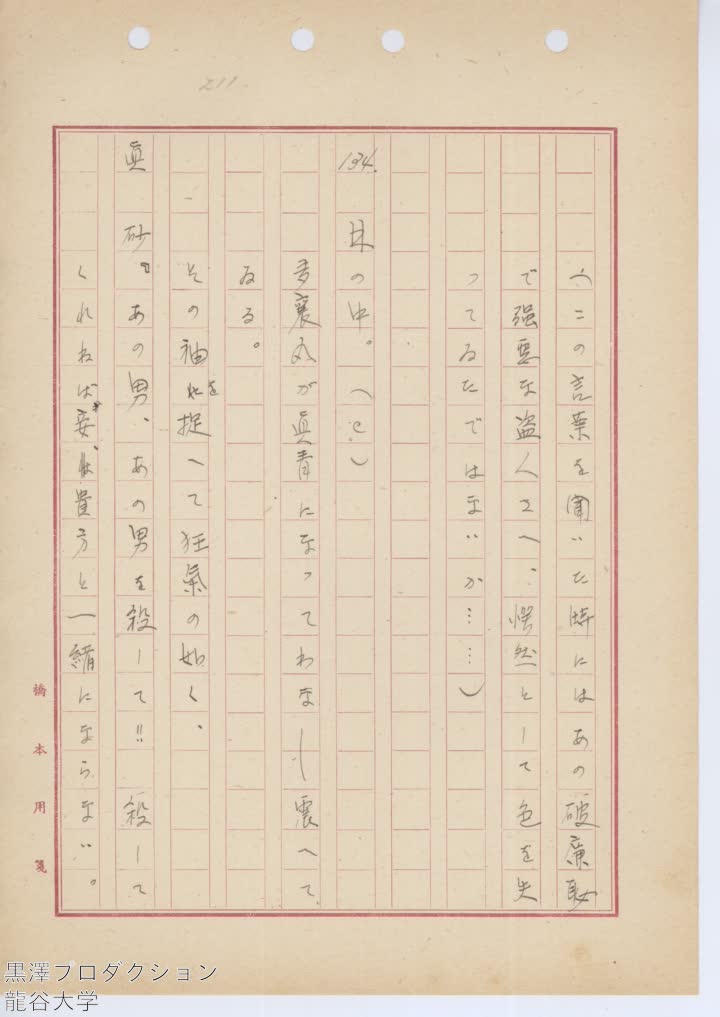 211.
(この言葉を聞いた時にはあの破廉恥
で強悪な盗人さへ、愕然として色を失
ってゐたではないか……)
134. 林の中。(C)
多襄丸が眞青になってわなゝ震へて
ゐる。
その袖を捉へて狂氣の如く、
眞砂。あの男、あの男を殺して!! 殺して
くれねば妾は貴方と一緒にならない。
橋本用箋
黒澤プロダクション
龍谷大学